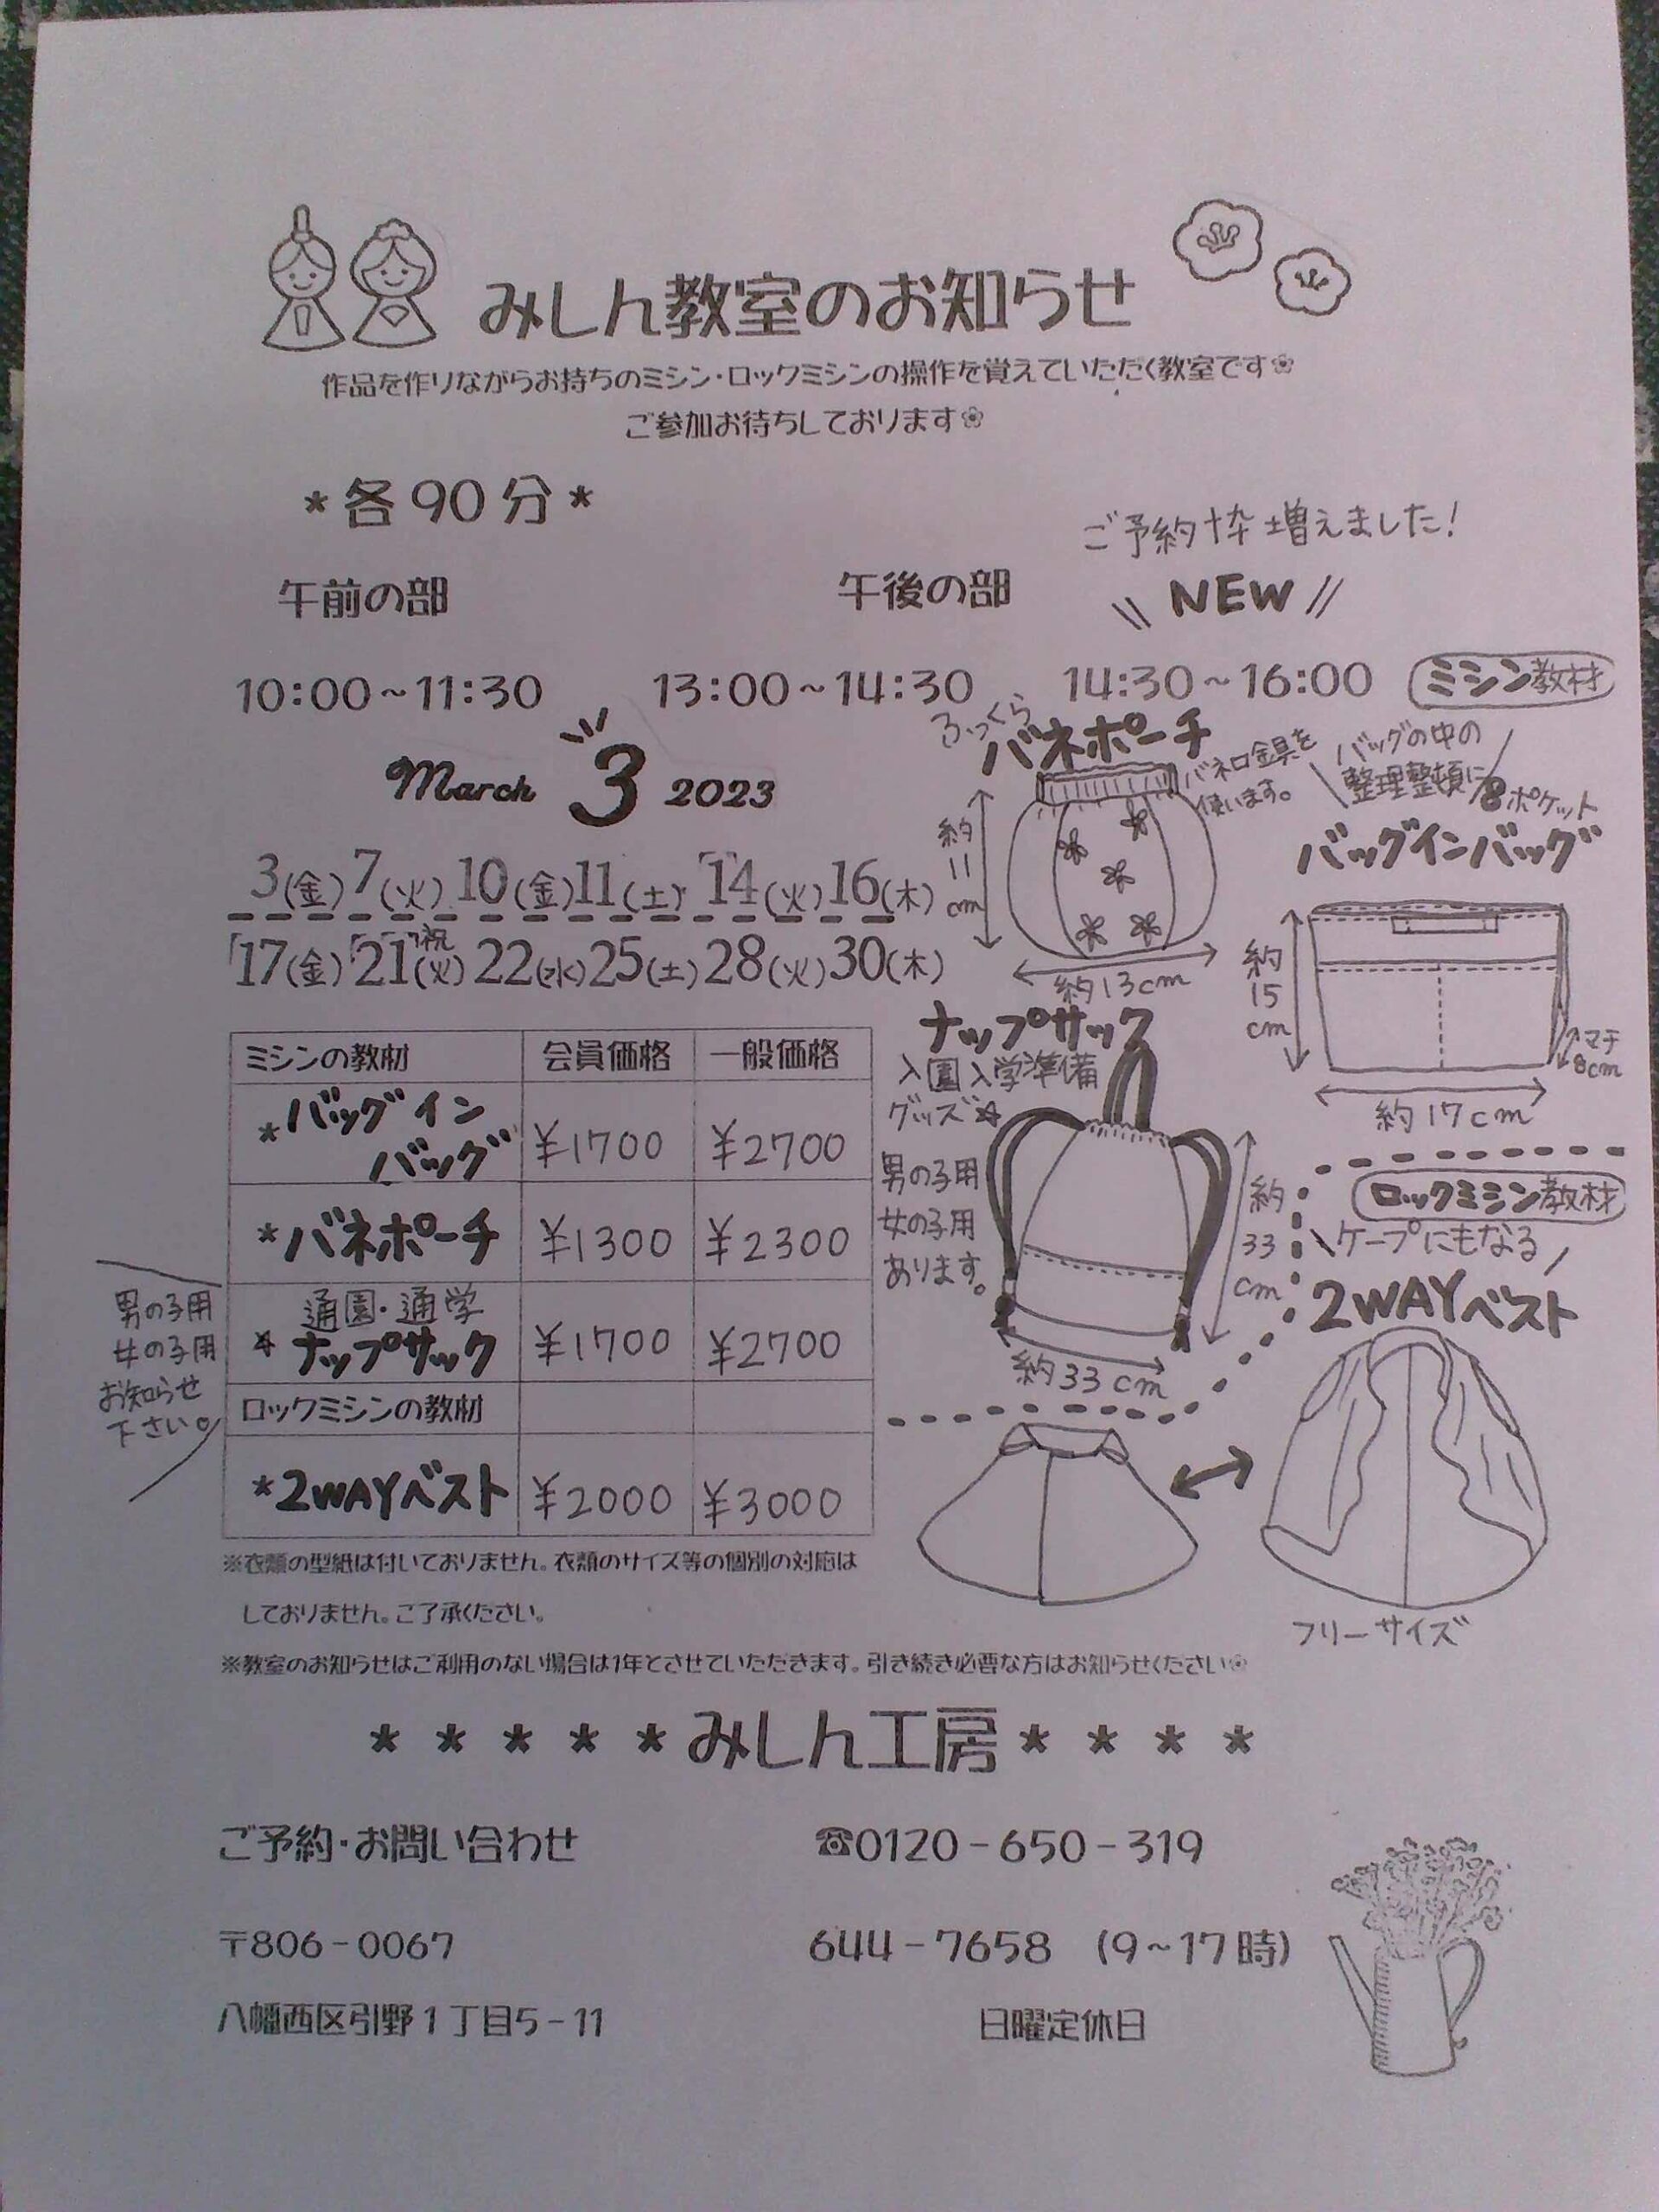 みしん教室のお知らせ
作品を作りながらお持ちのミシン・ロックミシンの操作を覚えていただく教室です
ご参加お待ちしております
*各90分*
ご予約枠増えました!
午前の部 午後の部 \\ NEW //
10:00~11:30 13:00~14:30 14:30~16:00
March 3 2023
3(金) 7(火) 10(金) 11(土) 14(火) 16(木)
17(金) 21(火)祝 22(水) 25(土) 28(火) 30(木)
ミシン教材
ふっくら
バネポーチ
バネ口金具を
使います。
約11cm
約13cm
バッグの中の
整理整頓に
8ポケット
バッグインバッグ
約15cm
マチ
8cm
約17cm
ナップサック
入園入学準備
グッズ☆
男の子用
女の子用
あります。
約33cm
約33cm
ロックミシン教材
ケープにもなる
2WAYベスト
フリーサイズ
ミシンの教材 会員価格 一般価格
*バッグイン
バッグ ¥1700 ¥2700
*バネポーチ ¥1300 ¥2300
通園・通学
☆ナップサック ¥1700 ¥2700
男の子用
女の子用
お知らせ
下さい。
ロックミシンの教材
*2WAYベスト ¥2000 ¥3000
※衣類の型紙は付いておりません。衣類のサイズ等の個別の対応は
しておりません。ご了承ください。
※教室のお知らせはご利用のない場合は1年とさせていただきます。引き続き必要な方はお知らせください
* * * * *みしん工房* * * *
ご予約・お問い合わせ ☎0120-650-319
〒806-0067 644-7658 (9~17時)
八幡西区引野1丁目5-11 日曜定休日